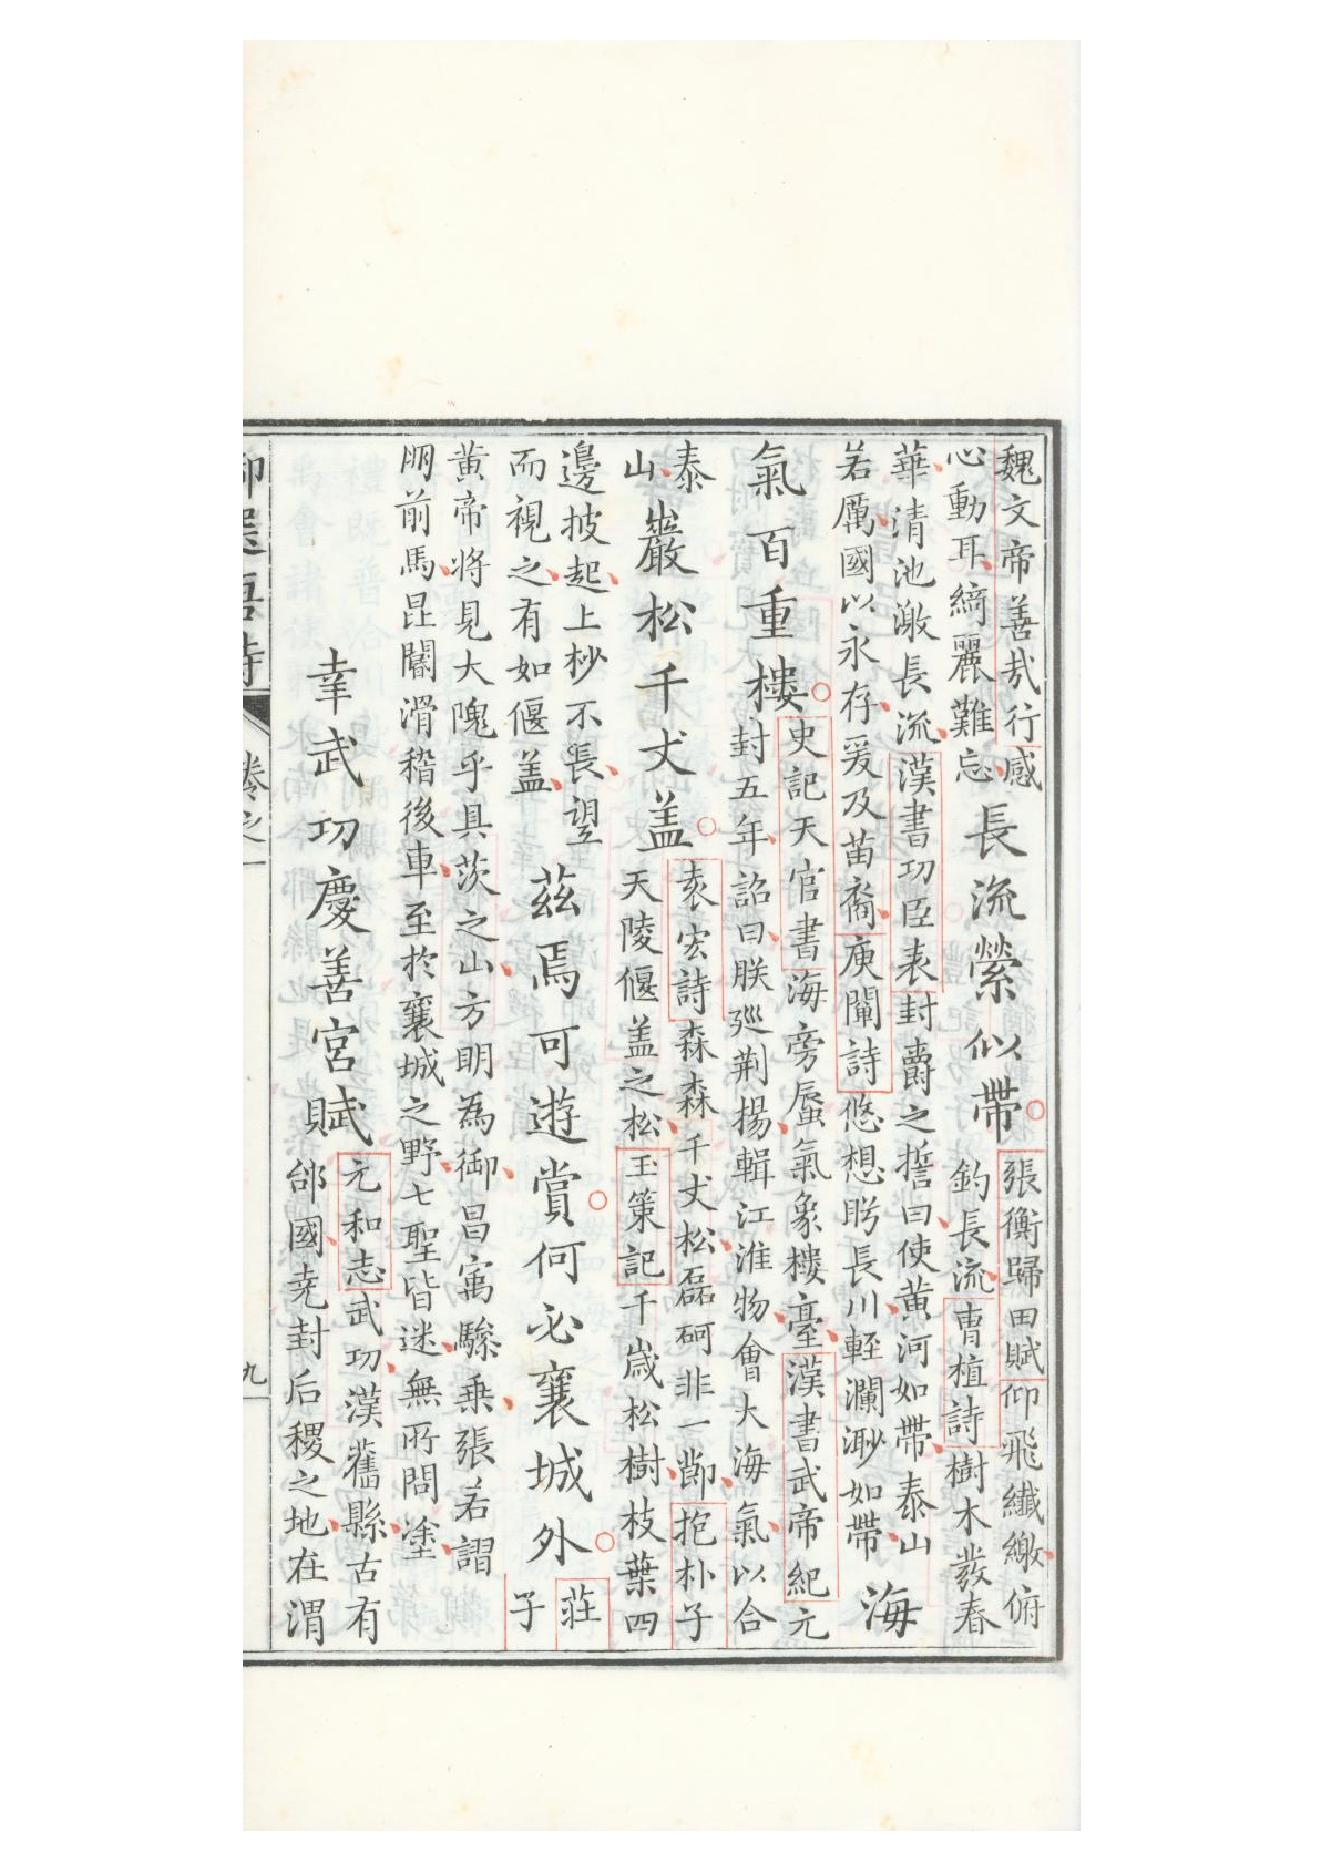 魏文帝善哉行感
心動耳綺麗難忘
長流縈似帶
張衡歸田賦仰飛纖繳俯
釣長流曹植詩樹木發春
華清池激長流漢書功臣表封爵之誓曰使黃河如帶泰山
若厲國以永存爰及苗裔庾闡詩悠想盻長川輕瀾渺如帶
海
氣百重樓
史記天官書海旁蜃氣象樓臺漢書武帝紀元
封五年詔曰朕巡荊揚輯江淮物會大海氣以合
泰
山
巖松千丈盖
袁宏詩森森千丈松磊砢非一莭抱朴子
天陵偃盖之松玉策記千歲松樹枝葉四
邊披起上杪不長望
而視之有如偃盖
茲焉可遊賞何必襄城外
莊
子
黃帝將見大隗乎具茨之山方明為御昌寓驂乗張若謵
朋前馬昆閽滑稽後車至於襄城之野七聖皆迷無所問塗
幸武功慶善宮賦
元和志武功漢舊縣古有
邰國堯封后稷之地在渭
卷之一
九